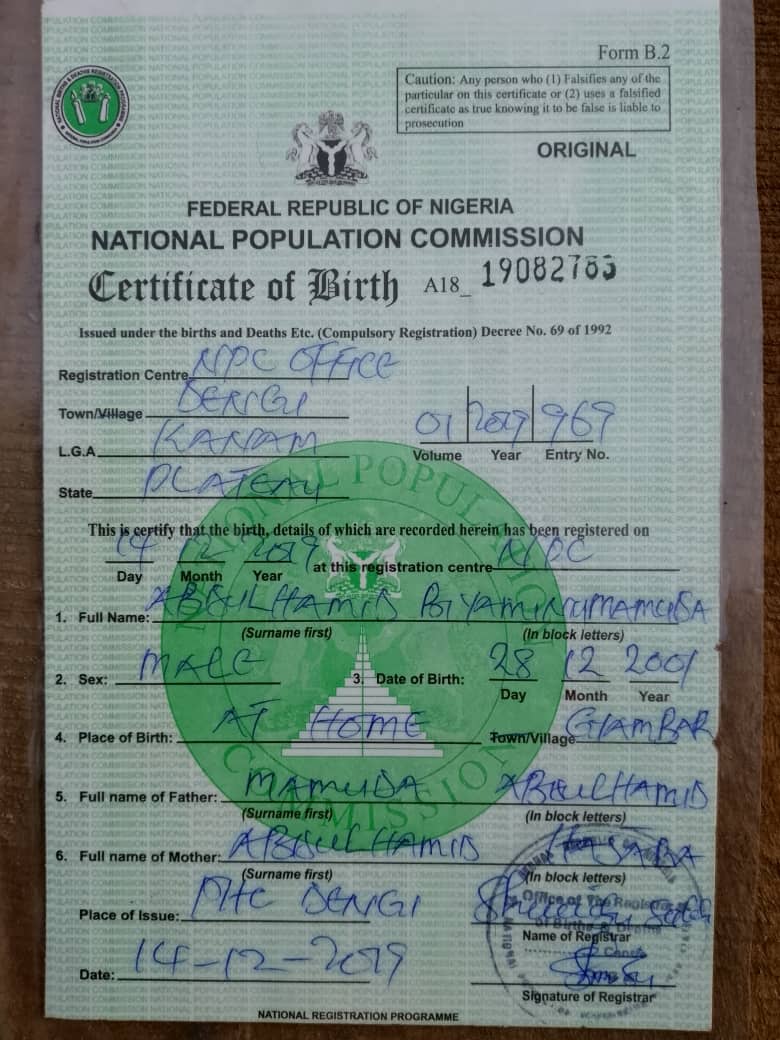 Form B.2
Caution: Any person who (1) Falsifies any of the
particular on this certificate or (2) uses a falsified
certificate as true knowing it to be false is liable to
prosecution
ORIGINAL
FEDERAL REPUBLIC OF NIGERIA
NATIONAL POPULATION COMMISSION
Certificate of Birth A18_ 19082783
Issued under the births and Deaths Etc. (Compulsory Registration) Decree No. 69 of 1992
Registration Centre NPC OFFICE
Town/Village DENGI
L.G.A KANAM
01 2019 969
Volume Year Entry No.
State PLATEAU
This is certify that the birth, details of which are recorded herein has been registered on
14 12 2019 at this registration centre NPC
Day Month Year
1. Full Name: ABDULHAMID BIYAMINUMAMUDA
(Surname first) (In block letters)
2. Sex: MALE 3. Date of Birth: 28 12 2001
Day Month Year
4. Place of Birth: AT HOME Town/Village GAMBAR
5. Full name of Father: MAMUDA ABDULHAMID
(Surname first) (In block letters)
6. Full name of Mother: ABDULHAMID
(Surname first) (In block letters)
Place of Issue: DENGI
Office of The Registrar
of Births & Deaths
Name of Registrar
Date: 14-12-2019
Signature of Registrar
NATIONAL REGISTRATION PROGRAMME
NATIONAL POPULATION
COMMISSION